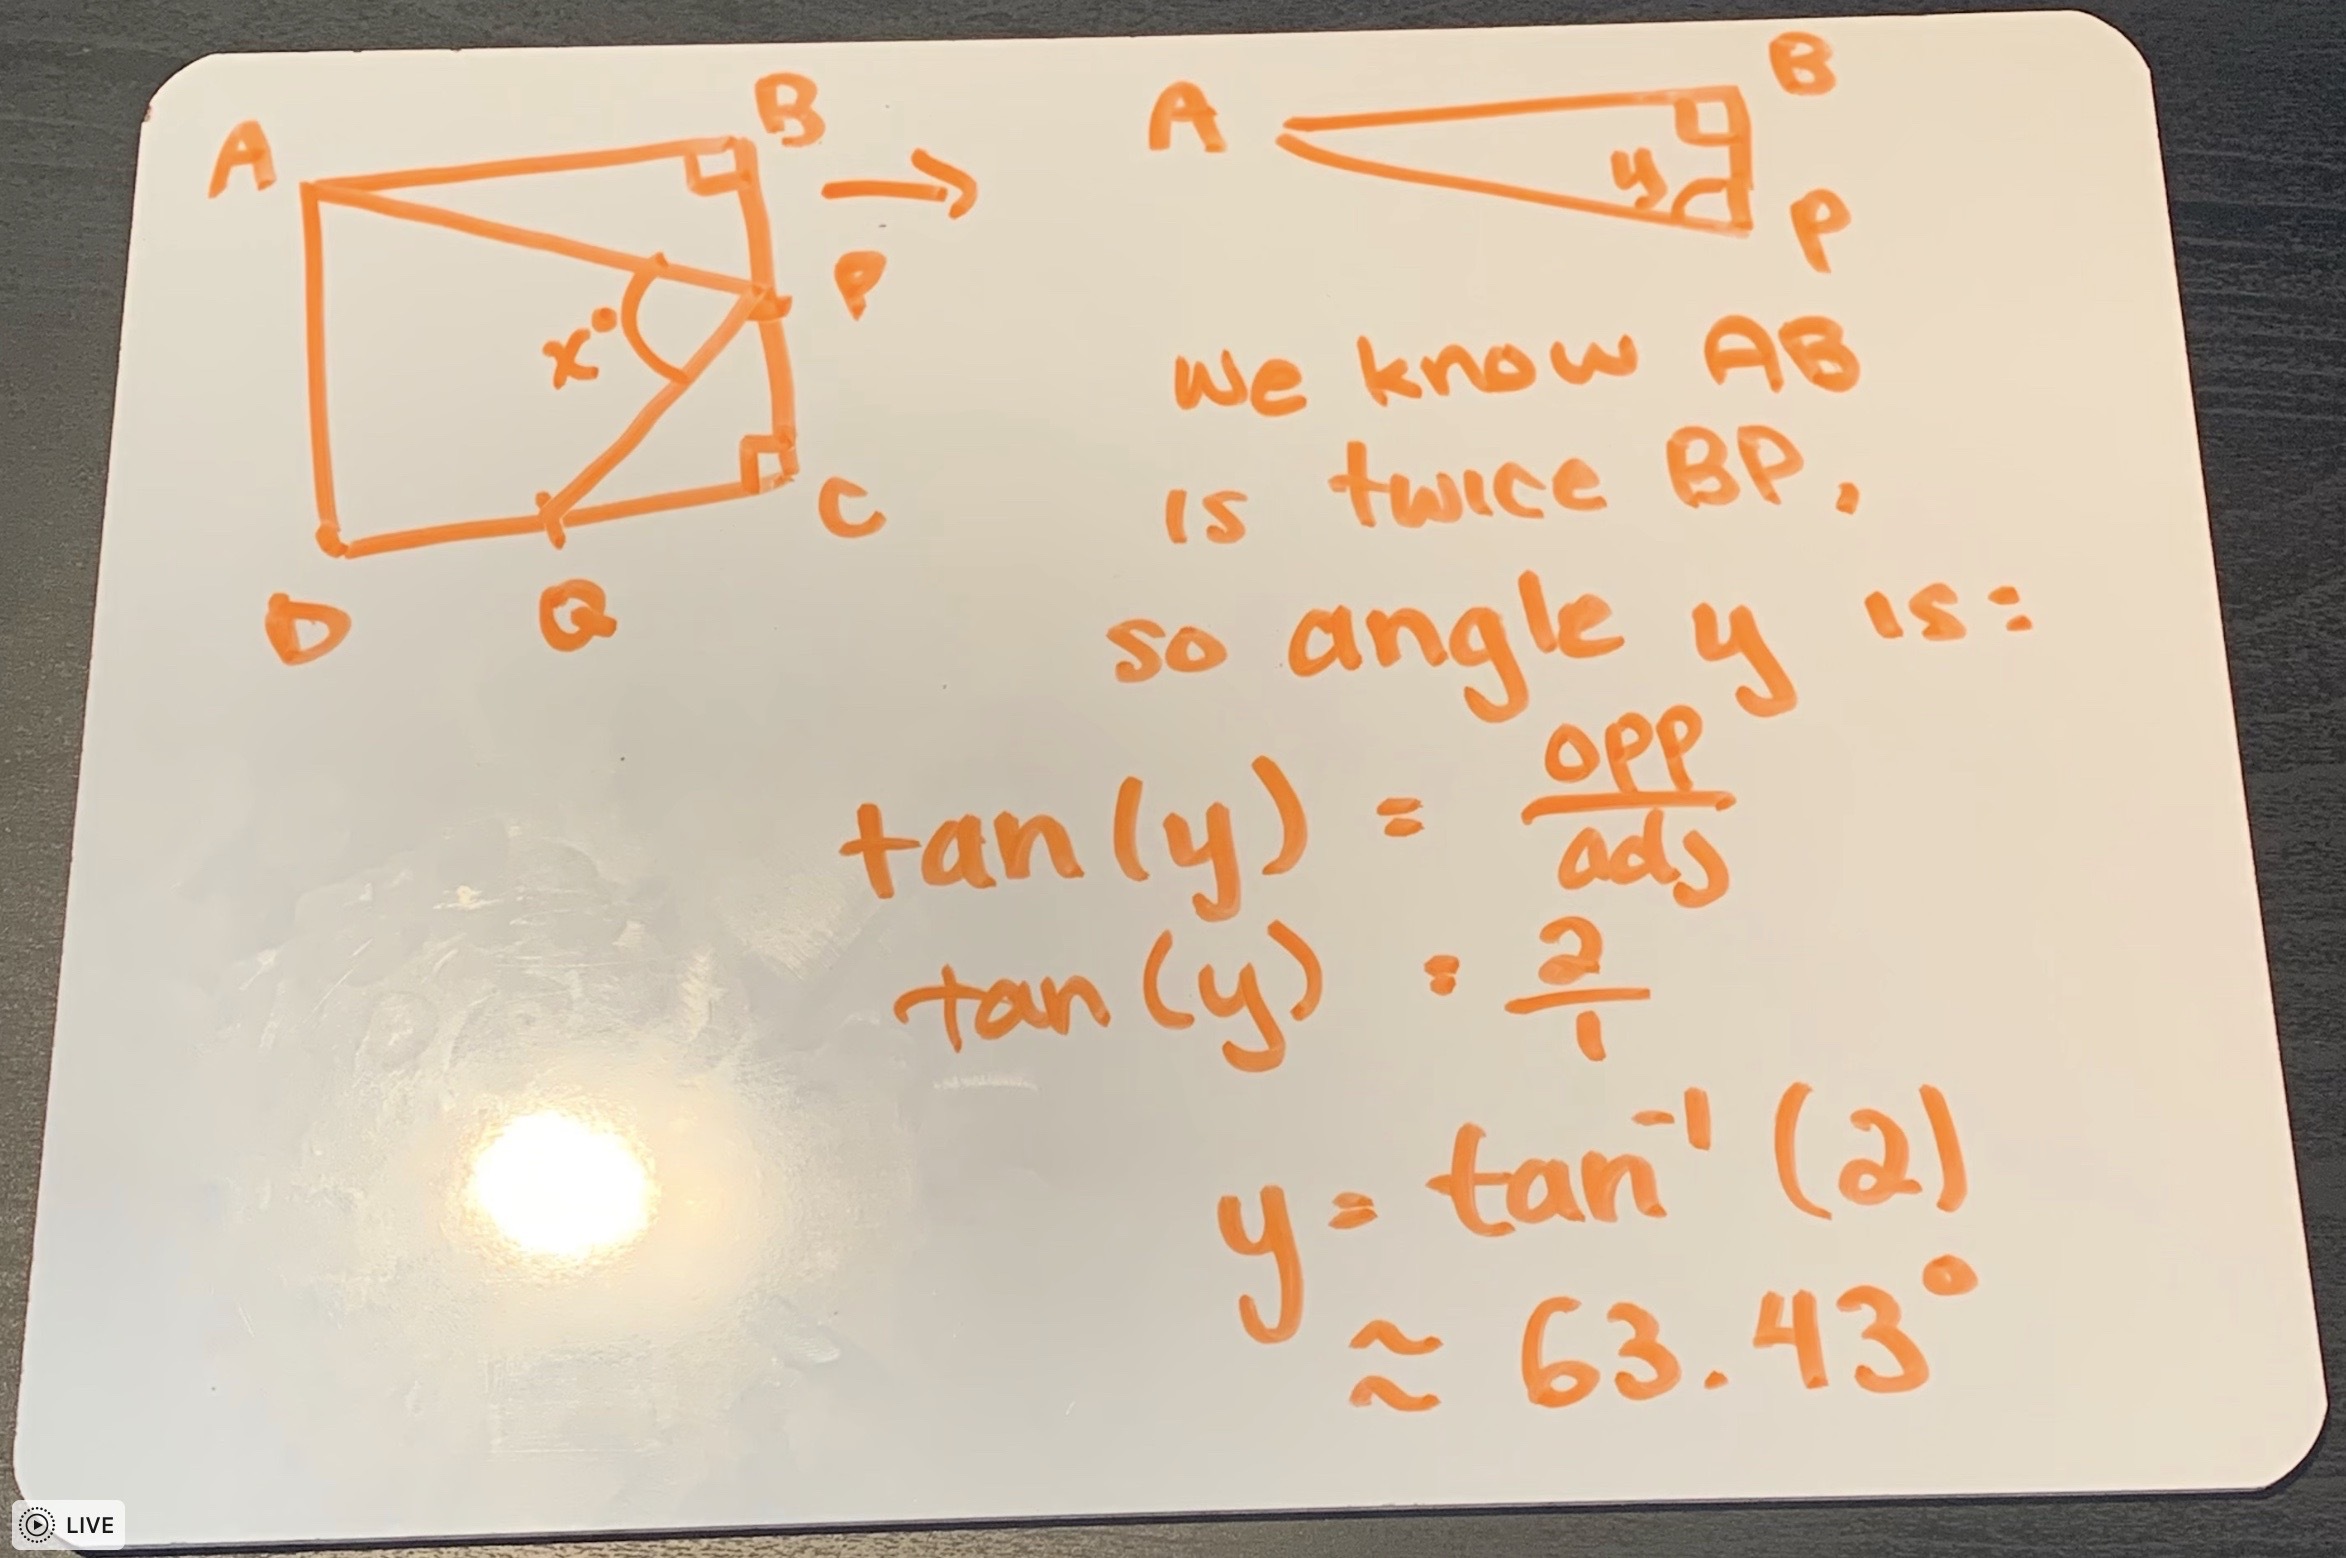 A
B
P
x°
C
D
Q
A
B
y
P
we know AB
is twice BP.
so angle y is:
tan(y) = opp/adj
tan(y) = 2/1
y = tan⁻¹(2)
≈ 63.43°
LIVE